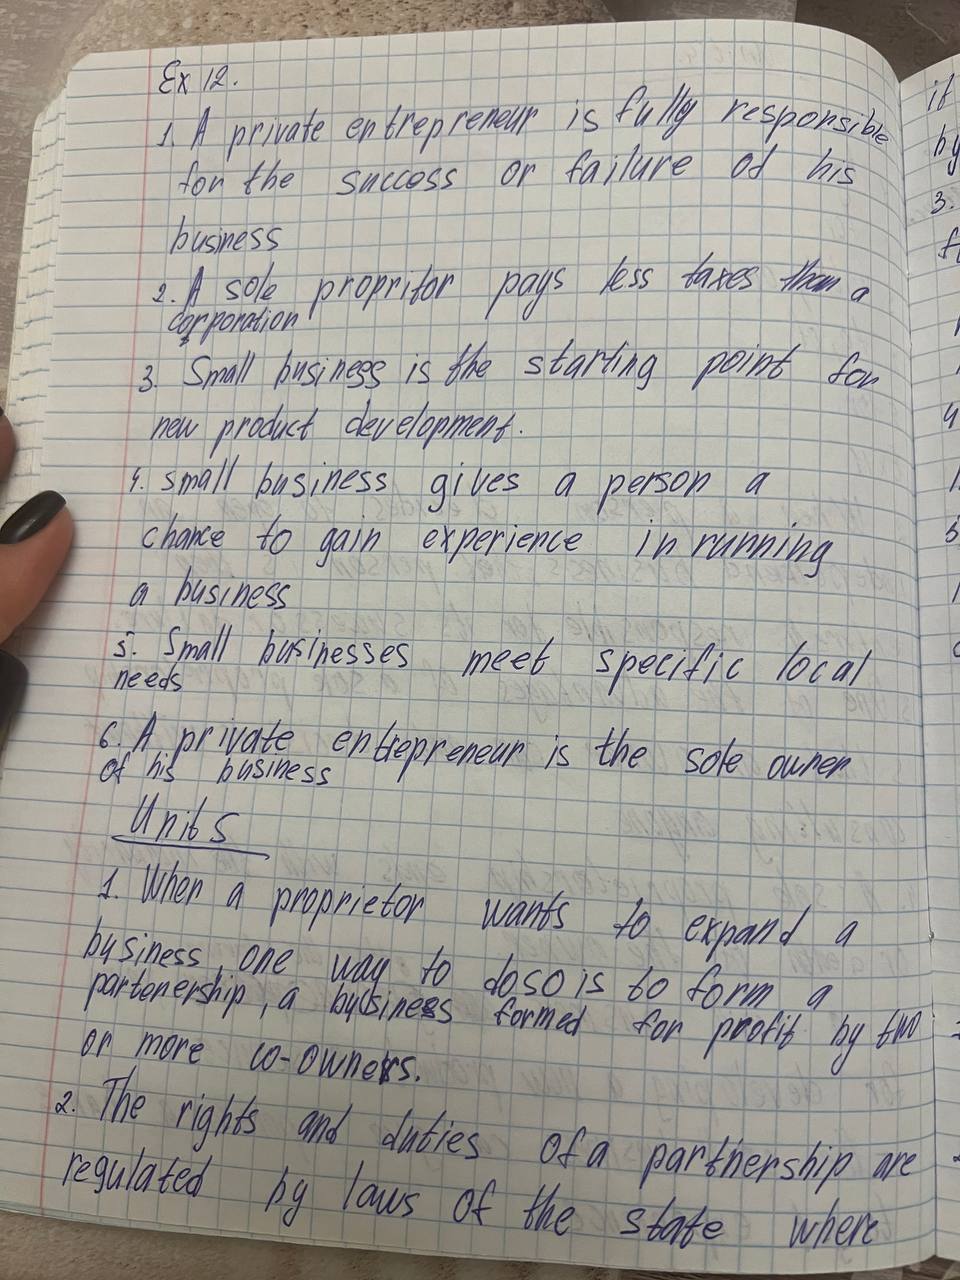 Ex 12.
1. A private entrepreneur is fully responsible
for the success or failure of his
business
2. A sole propritor pays less taxes than a
corporation
3. Small business is the starting point for
new product development.
4. small business gives a person a
chance to gain experience in running
a business
5. Small businesses meet specific local
needs
6. A private entrepreneur is the sole owner
of his business
Unit 5
1. When a proprietor wants to expand a
business, one way to do so is to form a
partenership, a business formed for profit by two
or more co-owners.
2. The rights and duties of a partnership are
regulated by laws of the state where
it
by
3.
4
5